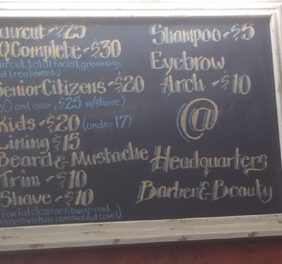 Haircut-$25
QComplete-$30
(haircut, total facial, grooming,
and treatment)
Senior Citizens-$20
(60 and over, $25 w/shave)
Kids-$20 (under 17)
Lining $15
Beard & Mustache
Trim-$10
Shave-$10
(facial cleanser, bump and
ingrown hair removal, hot towel)
Shampoo-$5
Eyebrow
Arch-$10
@
Headquarters
Barber & Beauty